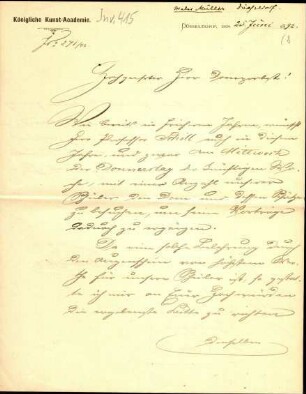 Königliche Kunst-Academie.
Inv. 415
Düsseldorf
Düsseldorf, den 20 Juni 189
Hochgeehrter Herr Domprobst!
Wie bereits in früheren Jahren, möchte
Herr Professor Schill auch in diesem
Jahre, und zwar am Mittwoch
oder Donnerstag der künftigen Wo-
che, mit einer Anzahl unserer
Schüler den Dom und dessen Schätze
besuchen, um seine Vorträge
dadurch zu ergänzen.
Da eine solche Belehrung durch
den Augenschein von höchstem Wer-
the für unsere Schüler ist, so gestat-
te ich mir an Euer Hochwürden
die ergebenste Bitte zu richten
denselben